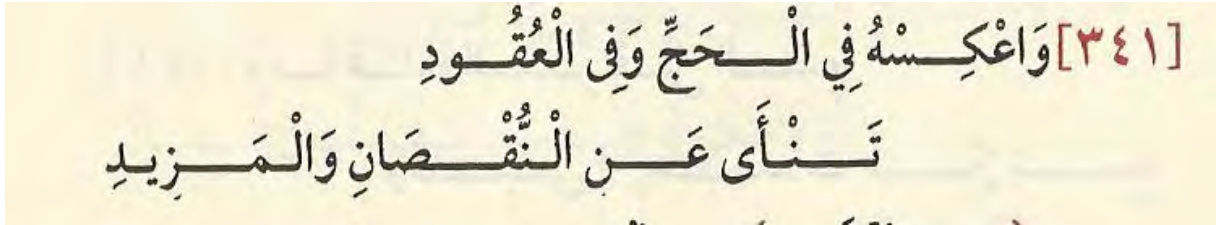 [٣٤١] وَاعْكِسْهُ فِي الْحَجِّ وَفِى الْعُقُودِ
تَنْأَى عَنِ الْنُّقْصَانِ وَالْمَزِيدِ